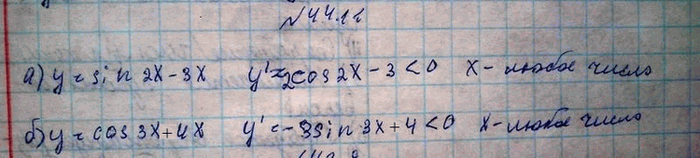 №44.11
а) y = sin 2x - 3x y' = 2cos 2x - 3 < 0 x - любое число
б) y = cos 3x + 4x y' = -3sin 3x + 4 < 0 x - любое число